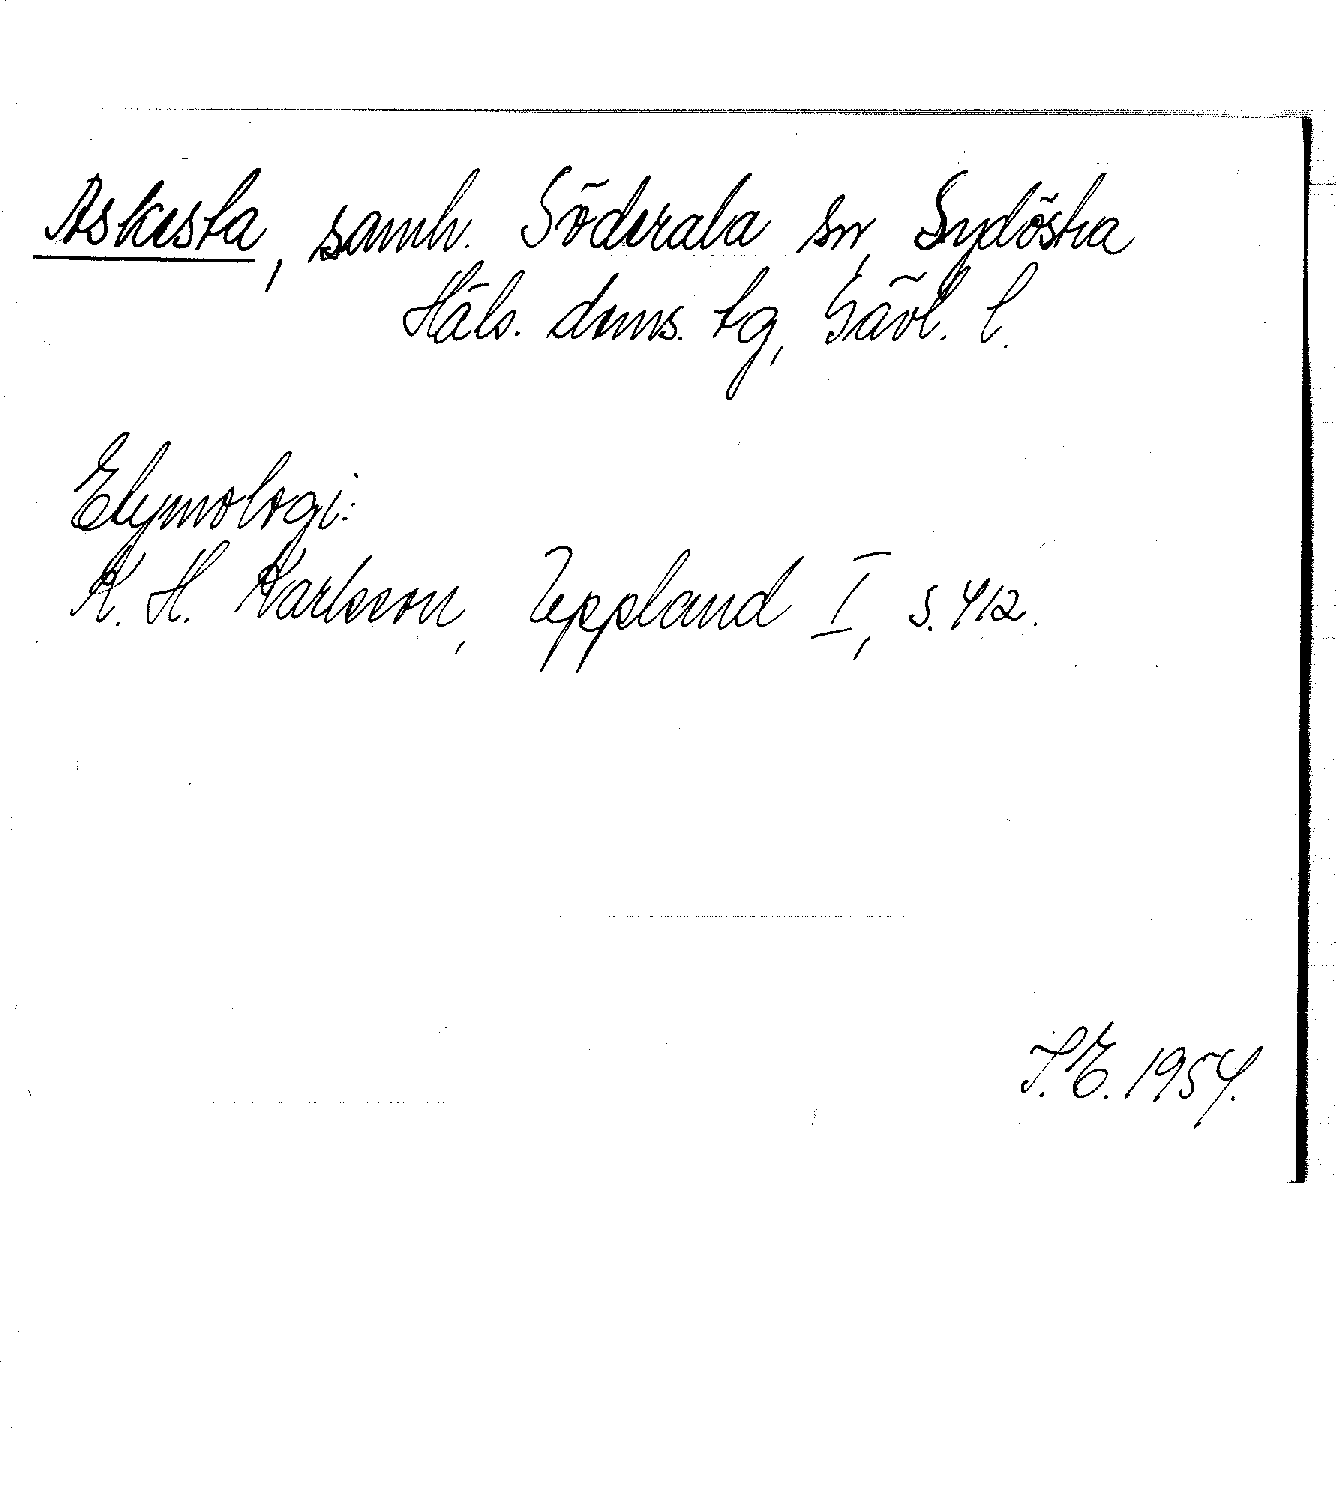 Askesta, samh. Söderala sn, Sydöstra
Häls. doms. tg, Gävl. l.
Etymologi:
K. H. Karlsson, Uppland I, s. 412.
S. E. 1954.